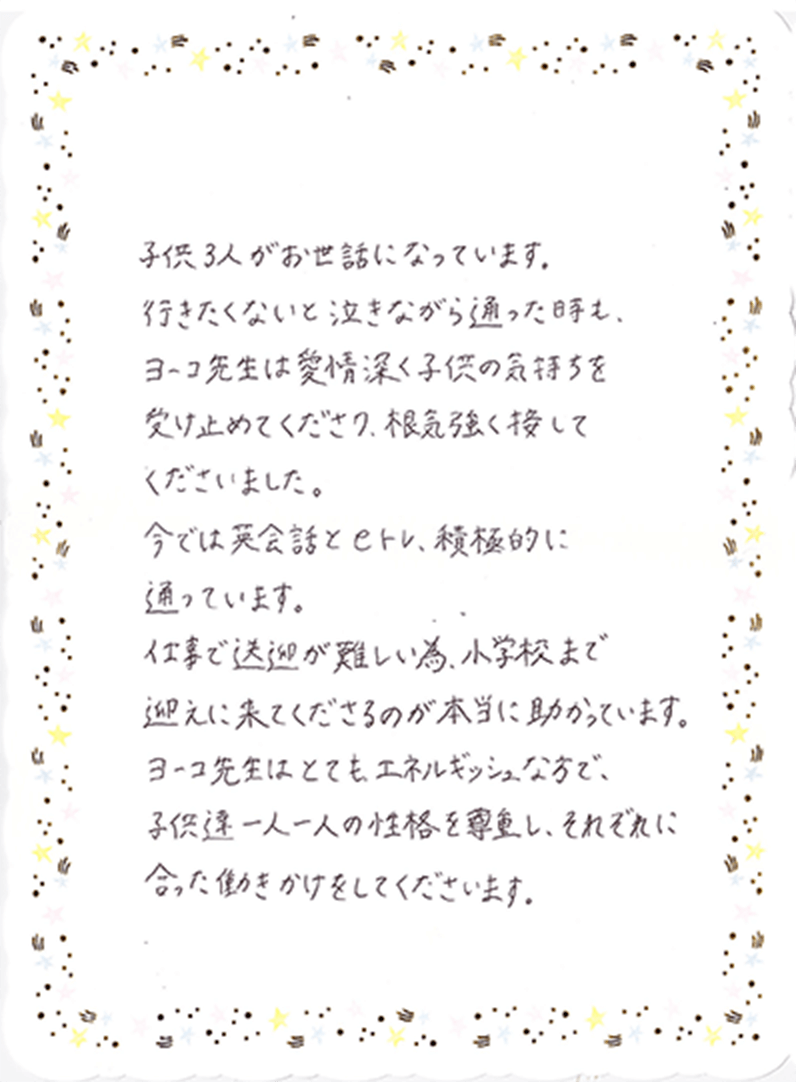 子供3人がお世話になっています。
行きたくないと泣きながら通った時も、
ヨーコ先生は愛情深く子供の気持ちを
受け止めてくださり、根気強く接して
くださいました。
今では英会話とeトレ、積極的に
通っています。
仕事で送迎が難しい為、小学校まで
迎えに来てくださるのが本当に助かっています。
ヨーコ先生はとても、エネルギッシュな方で、
子供達一人一人の性格を尊重し、それぞれに
合った働きかけをしてくださいます。